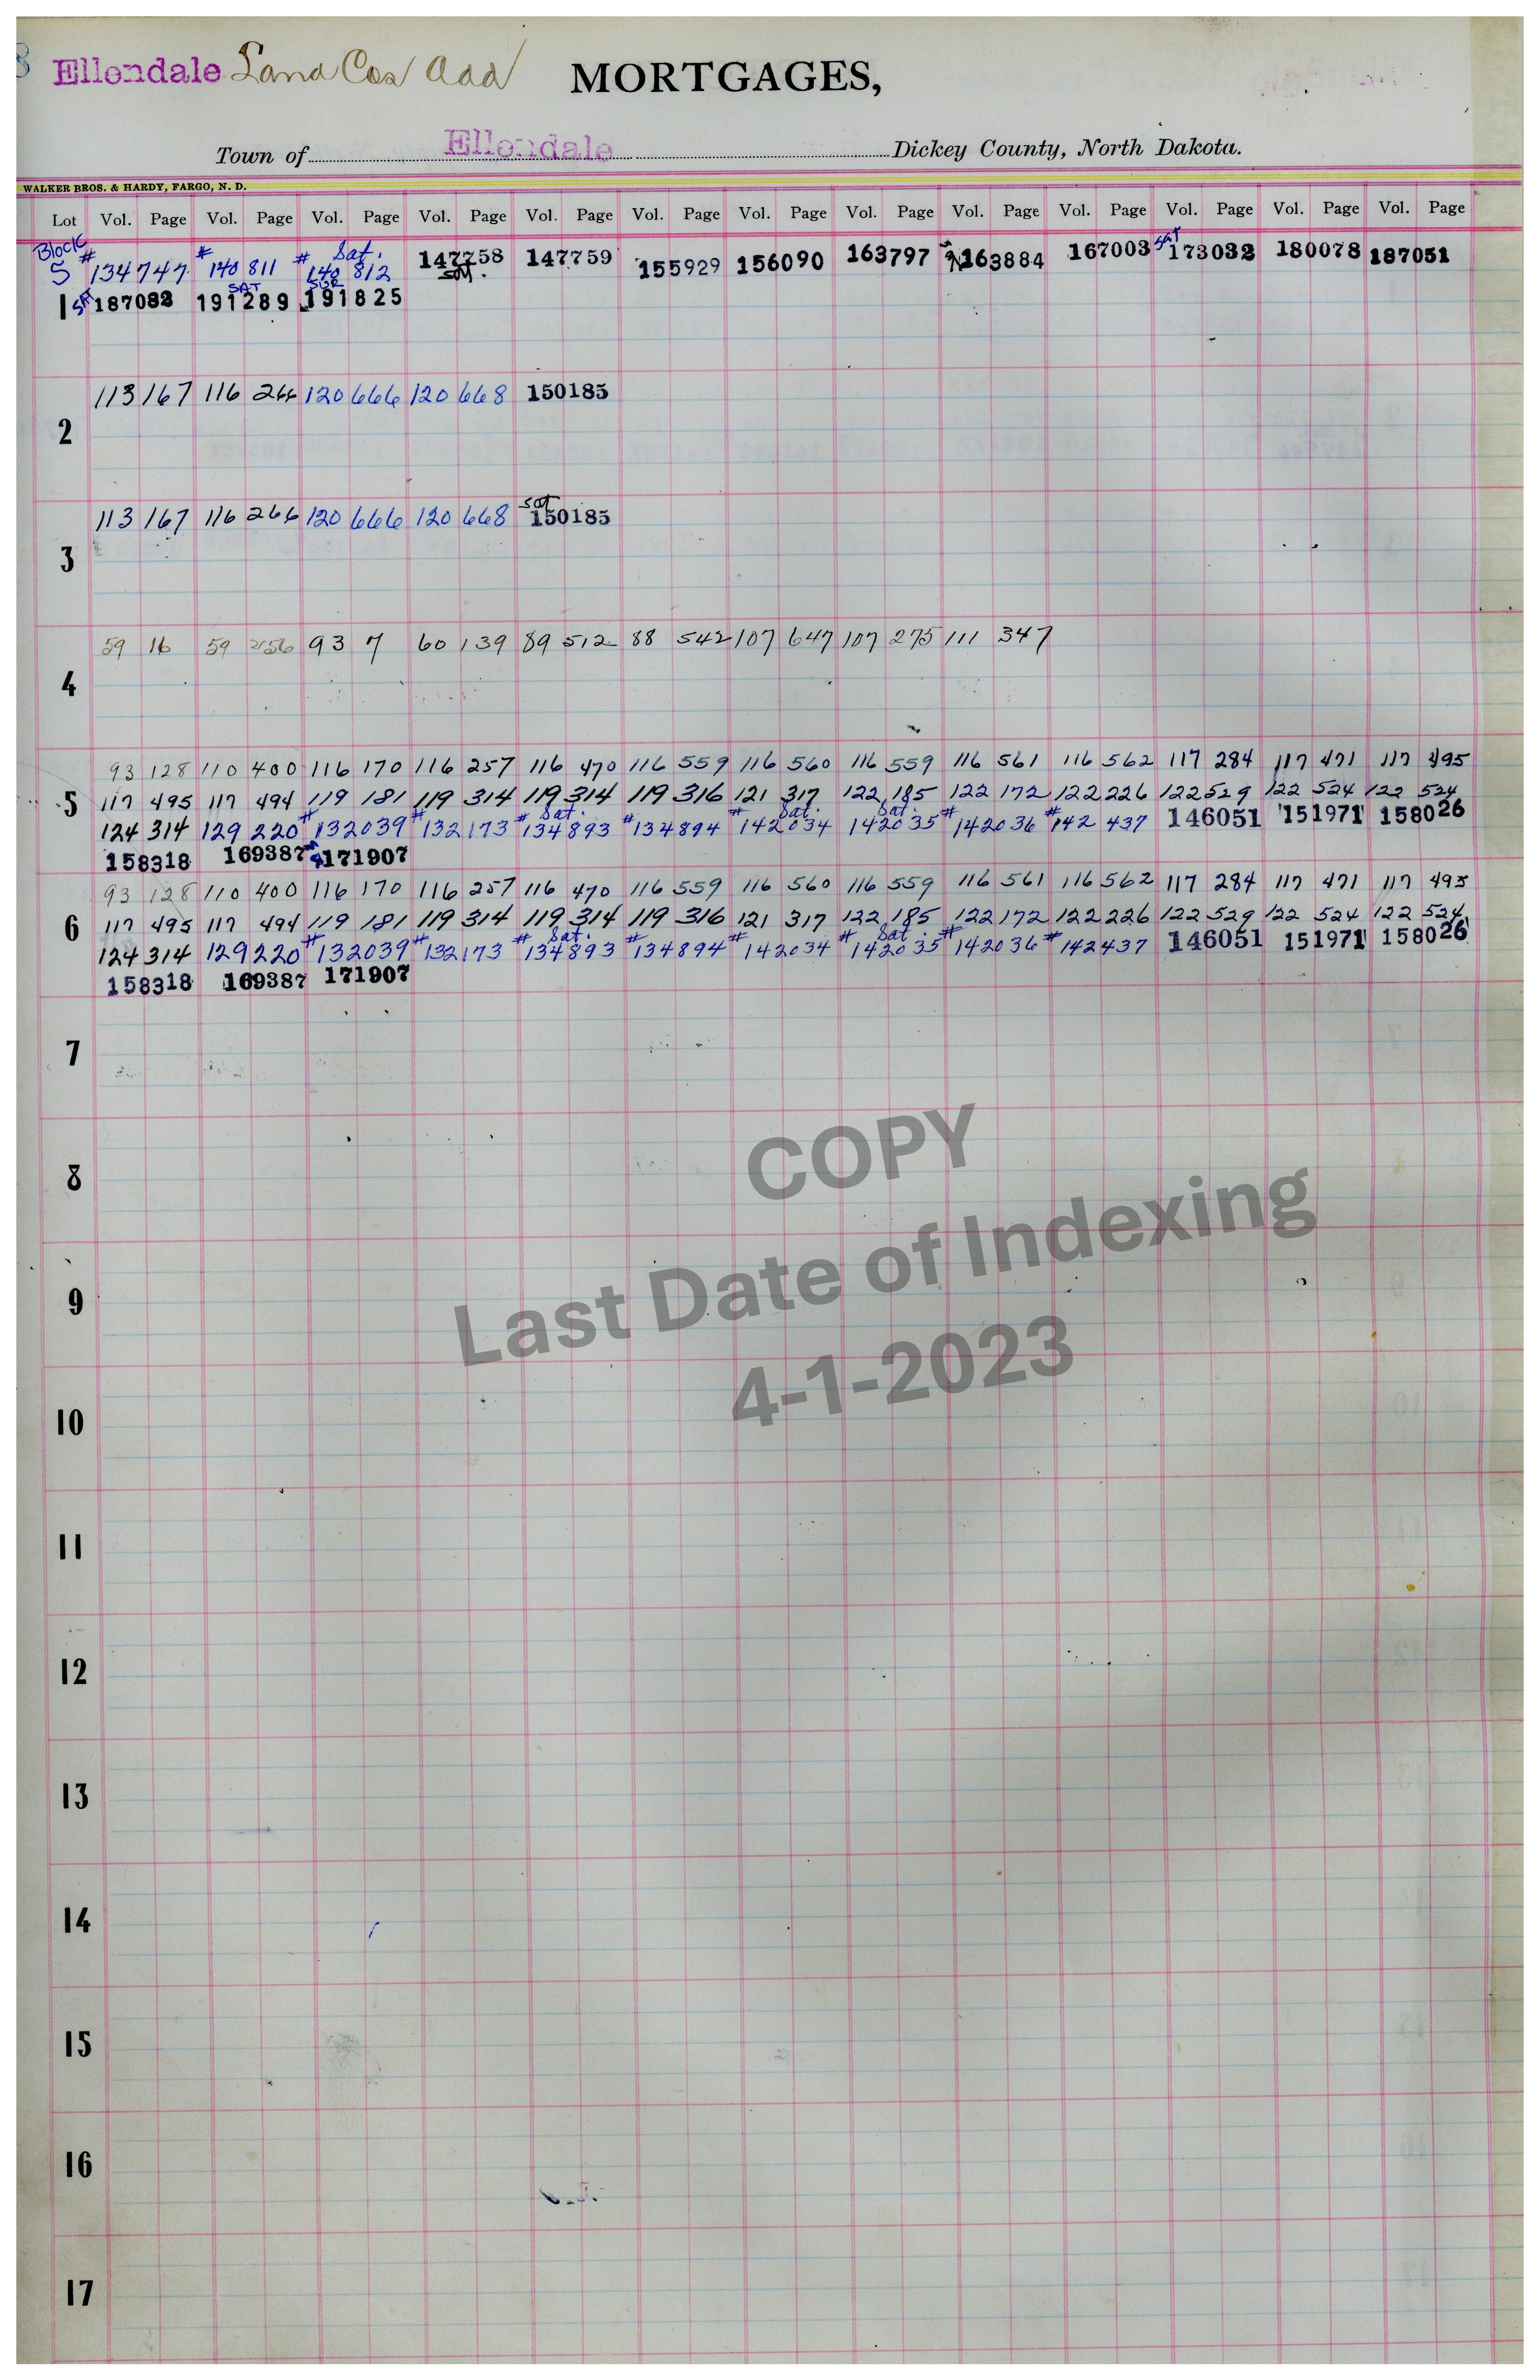 Ellendale Land Cos Add MORTGAGES,
Town of Ellendale Dickey County, North Dakota.
WALKER BROS. & HARDY, FARGO, N. D.
Lot Vol. Page Vol. Page Vol. Page Vol. Page Vol. Page Vol. Page Vol. Page Vol. Page Vol. Page Vol. Page Vol. Page Vol. Page Vol. Page
Block 5 #134747 #140 811 # Sat. 140 812 147758 sat. 147759 155929 156090 163797 163884 167003 SAT 173032 180078 187051
1 SAT 187082 SAT 191289 SBR 191825
113 167 116 266 120 666 120 668 150185
2
113 167 116 266 120 666 120 668 sat 150185
3
59 16 59 256 93 7 60 139 89 512 88 542 107 647 107 275 111 347
4
93 128 110 400 116 170 116 257 116 470 116 559 116 560 116 559 116 561 116 562 117 284 117 471 117 495
5 117 495 117 494 119 181 119 314 119 314 119 316 121 317 122 185 122 172 122 226 122 529 122 524 122 524
124 314 129 220 #132039 #132173 # Sat. 134893 #134894 # Sat. 142034 Sat. 142035 #142036 #142 437 146051 151971 158026
158318 169387 171907
93 128 110 400 116 170 116 257 116 470 116 559 116 560 116 559 116 561 116 562 117 284 117 471 117 495
6 117 495 117 494 119 181 119 314 119 314 119 316 121 317 122 185 122 172 122 226 122 529 122 524 122 524
124 314 129 220 #132039 #132173 # Sat. 134893 #134894 #142034 # Sat. 142035 #142036 #142437 146051 151971 158026
158318 169387 171907
7
8
COPY
9
Last Date of Indexing
4-1-2023
10
11
12
13
14
15
16
17